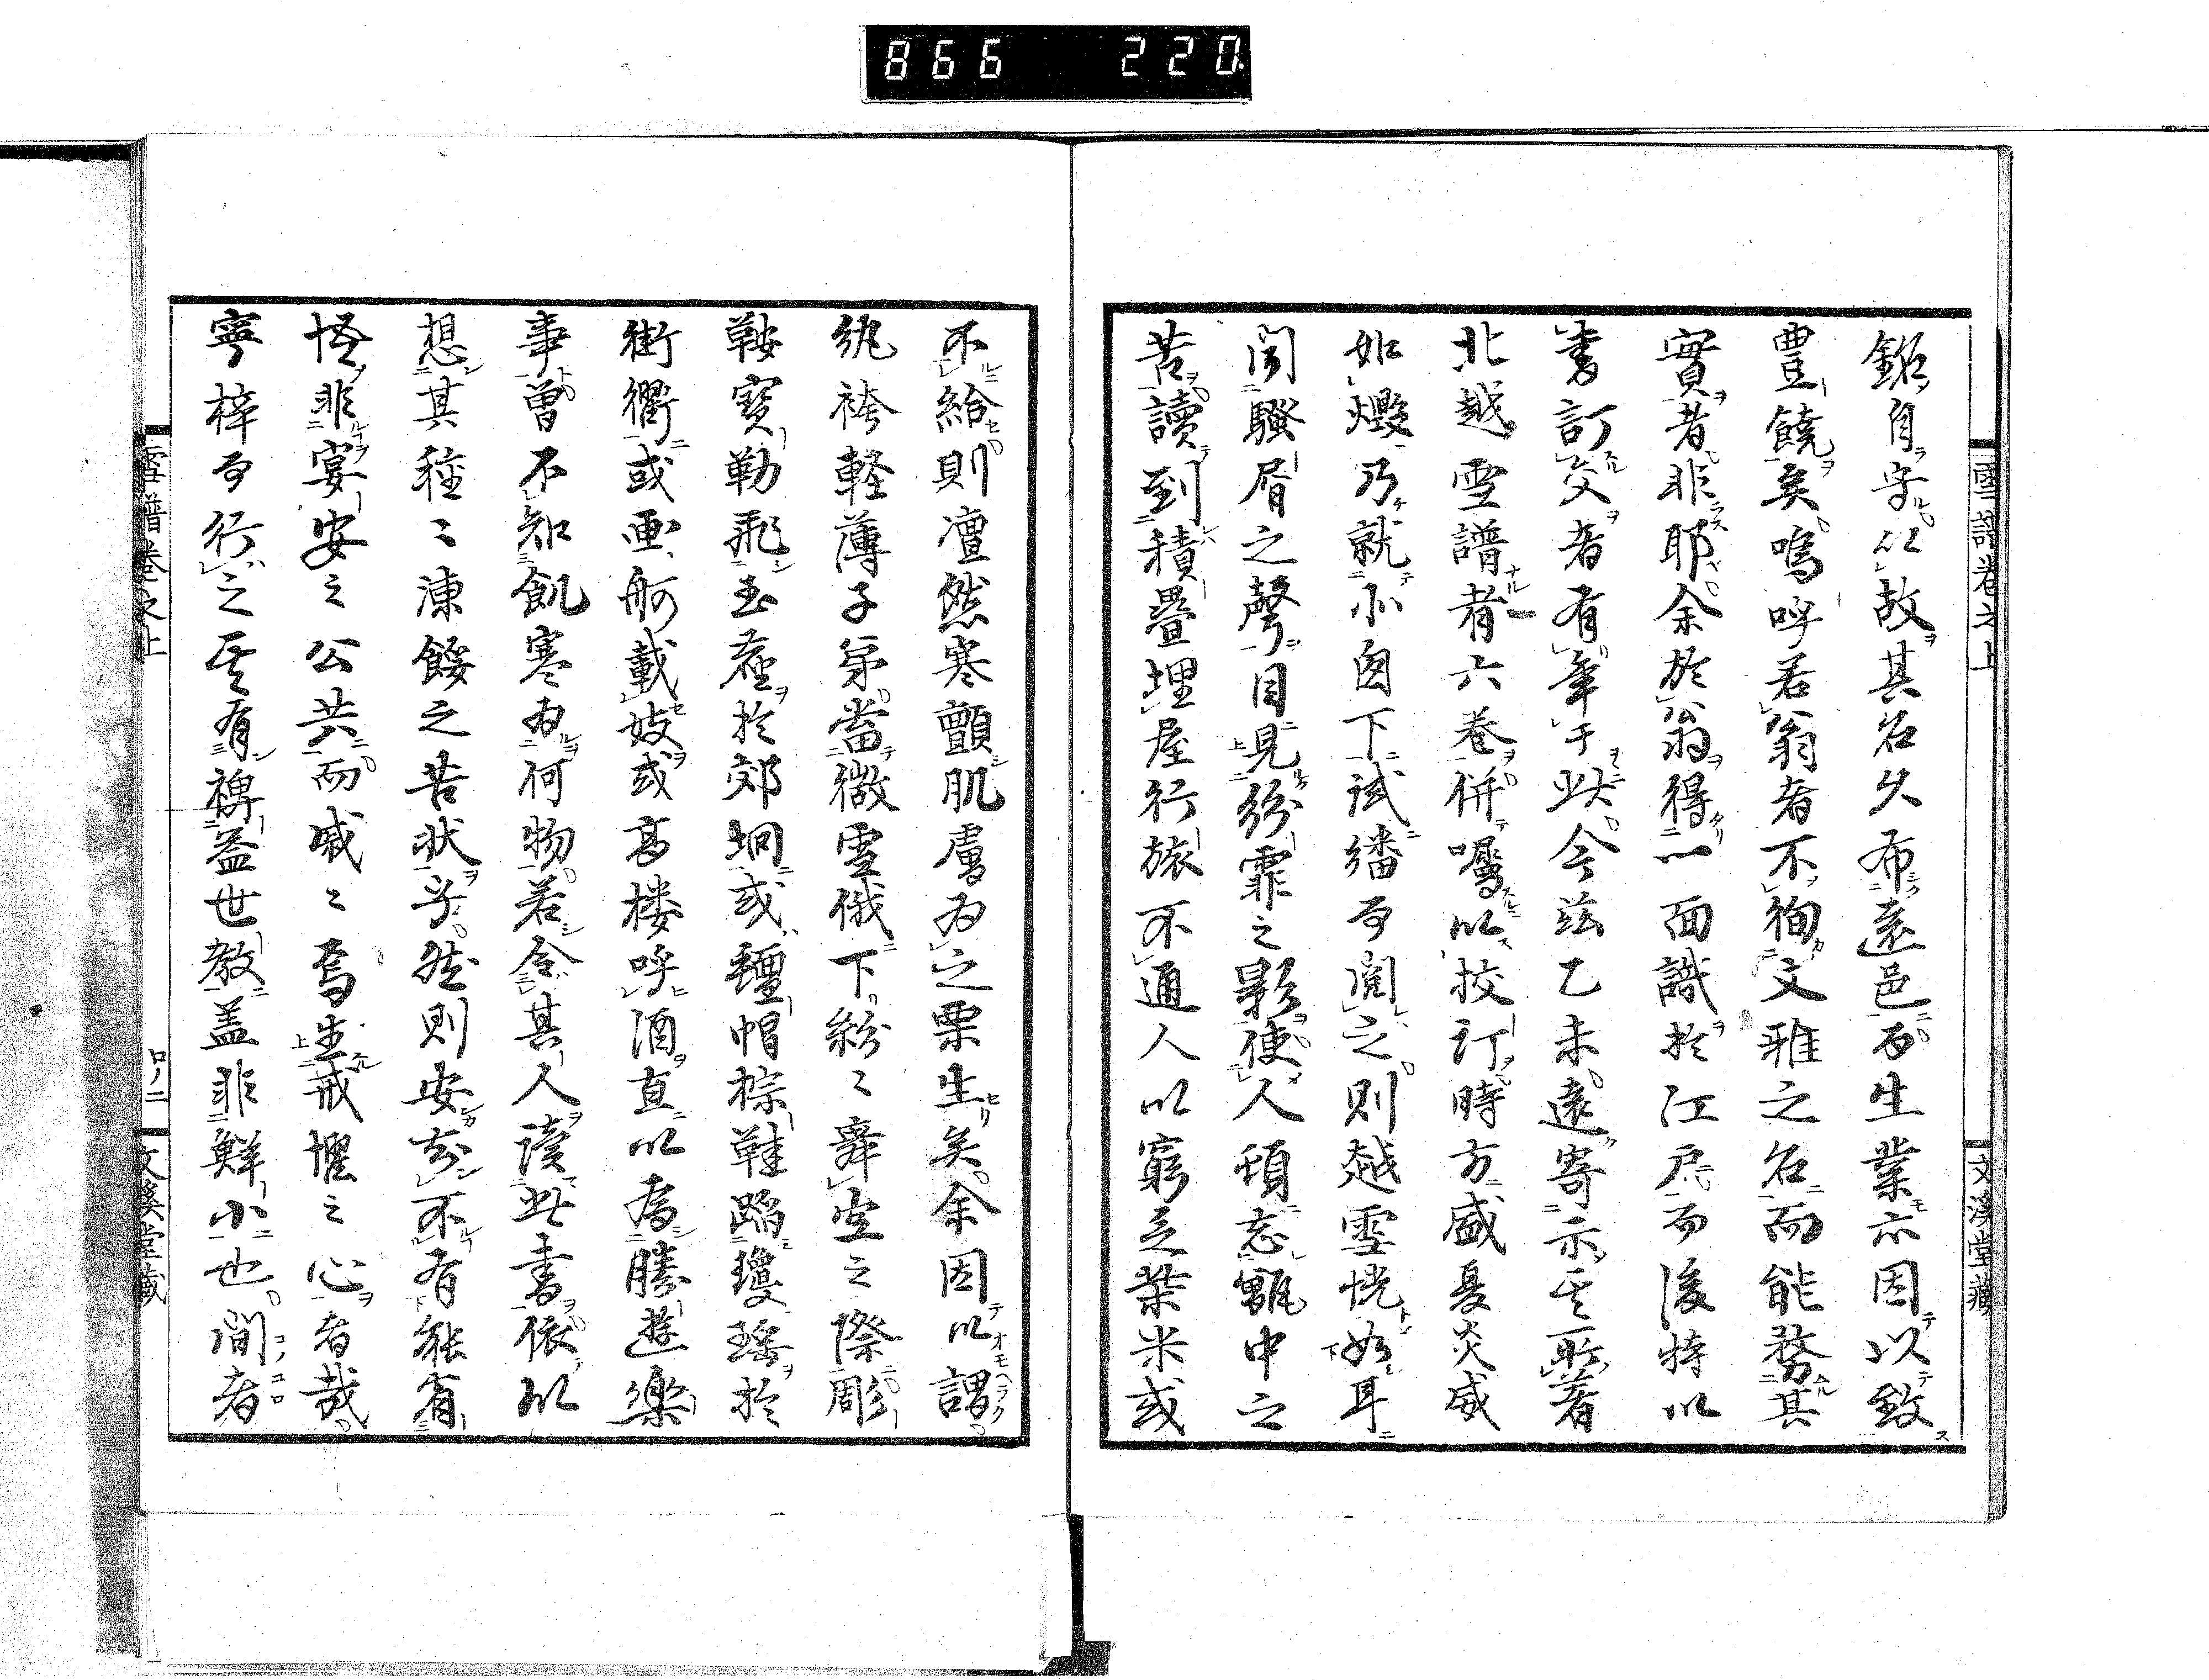 866 220
雪譜卷之上
文溪堂藏
鉛自守以故其名久布遠邑而生業亦因以致
豊饒矣嗚呼若翁者不徇文雅之名而能務其
實者非耶余於翁得一面識於江戸而後特以
書訂交者有年于此今茲乙未遠寄示其所著
北越雪譜者六卷併囑以挍訂時方盛夏炎威
如燬乃就小囱下試繙而閲之則越雪恍如耳
聞騷屑之聲目見紛霏之影使人頓忘甑中之
苦讀到積疊埋屋行旅不通人以窮乏菜米或
不給則凛然寒顫肌膚为之栗生矣余因以謂
紈袴軽薄子弟當微雪俄下紛〻舞空之際彫
鞍寶勒飛玉塵於郊坰或氊帽棕鞋蹈瓊瑤於
街衢或画舸載妓或高楼呼酒直以為勝遊樂
事曽不知飢寒为何物若令其人讀此書依以
想其種〻凍餒之苦状乎然則安知不有能省
怪非宴安之公共而喊〻焉生戒懼之心者哉
寧梓而行之其有裨益世教盖非鮮小也間者
雪譜卷之上
口ノ二
文溪堂藏